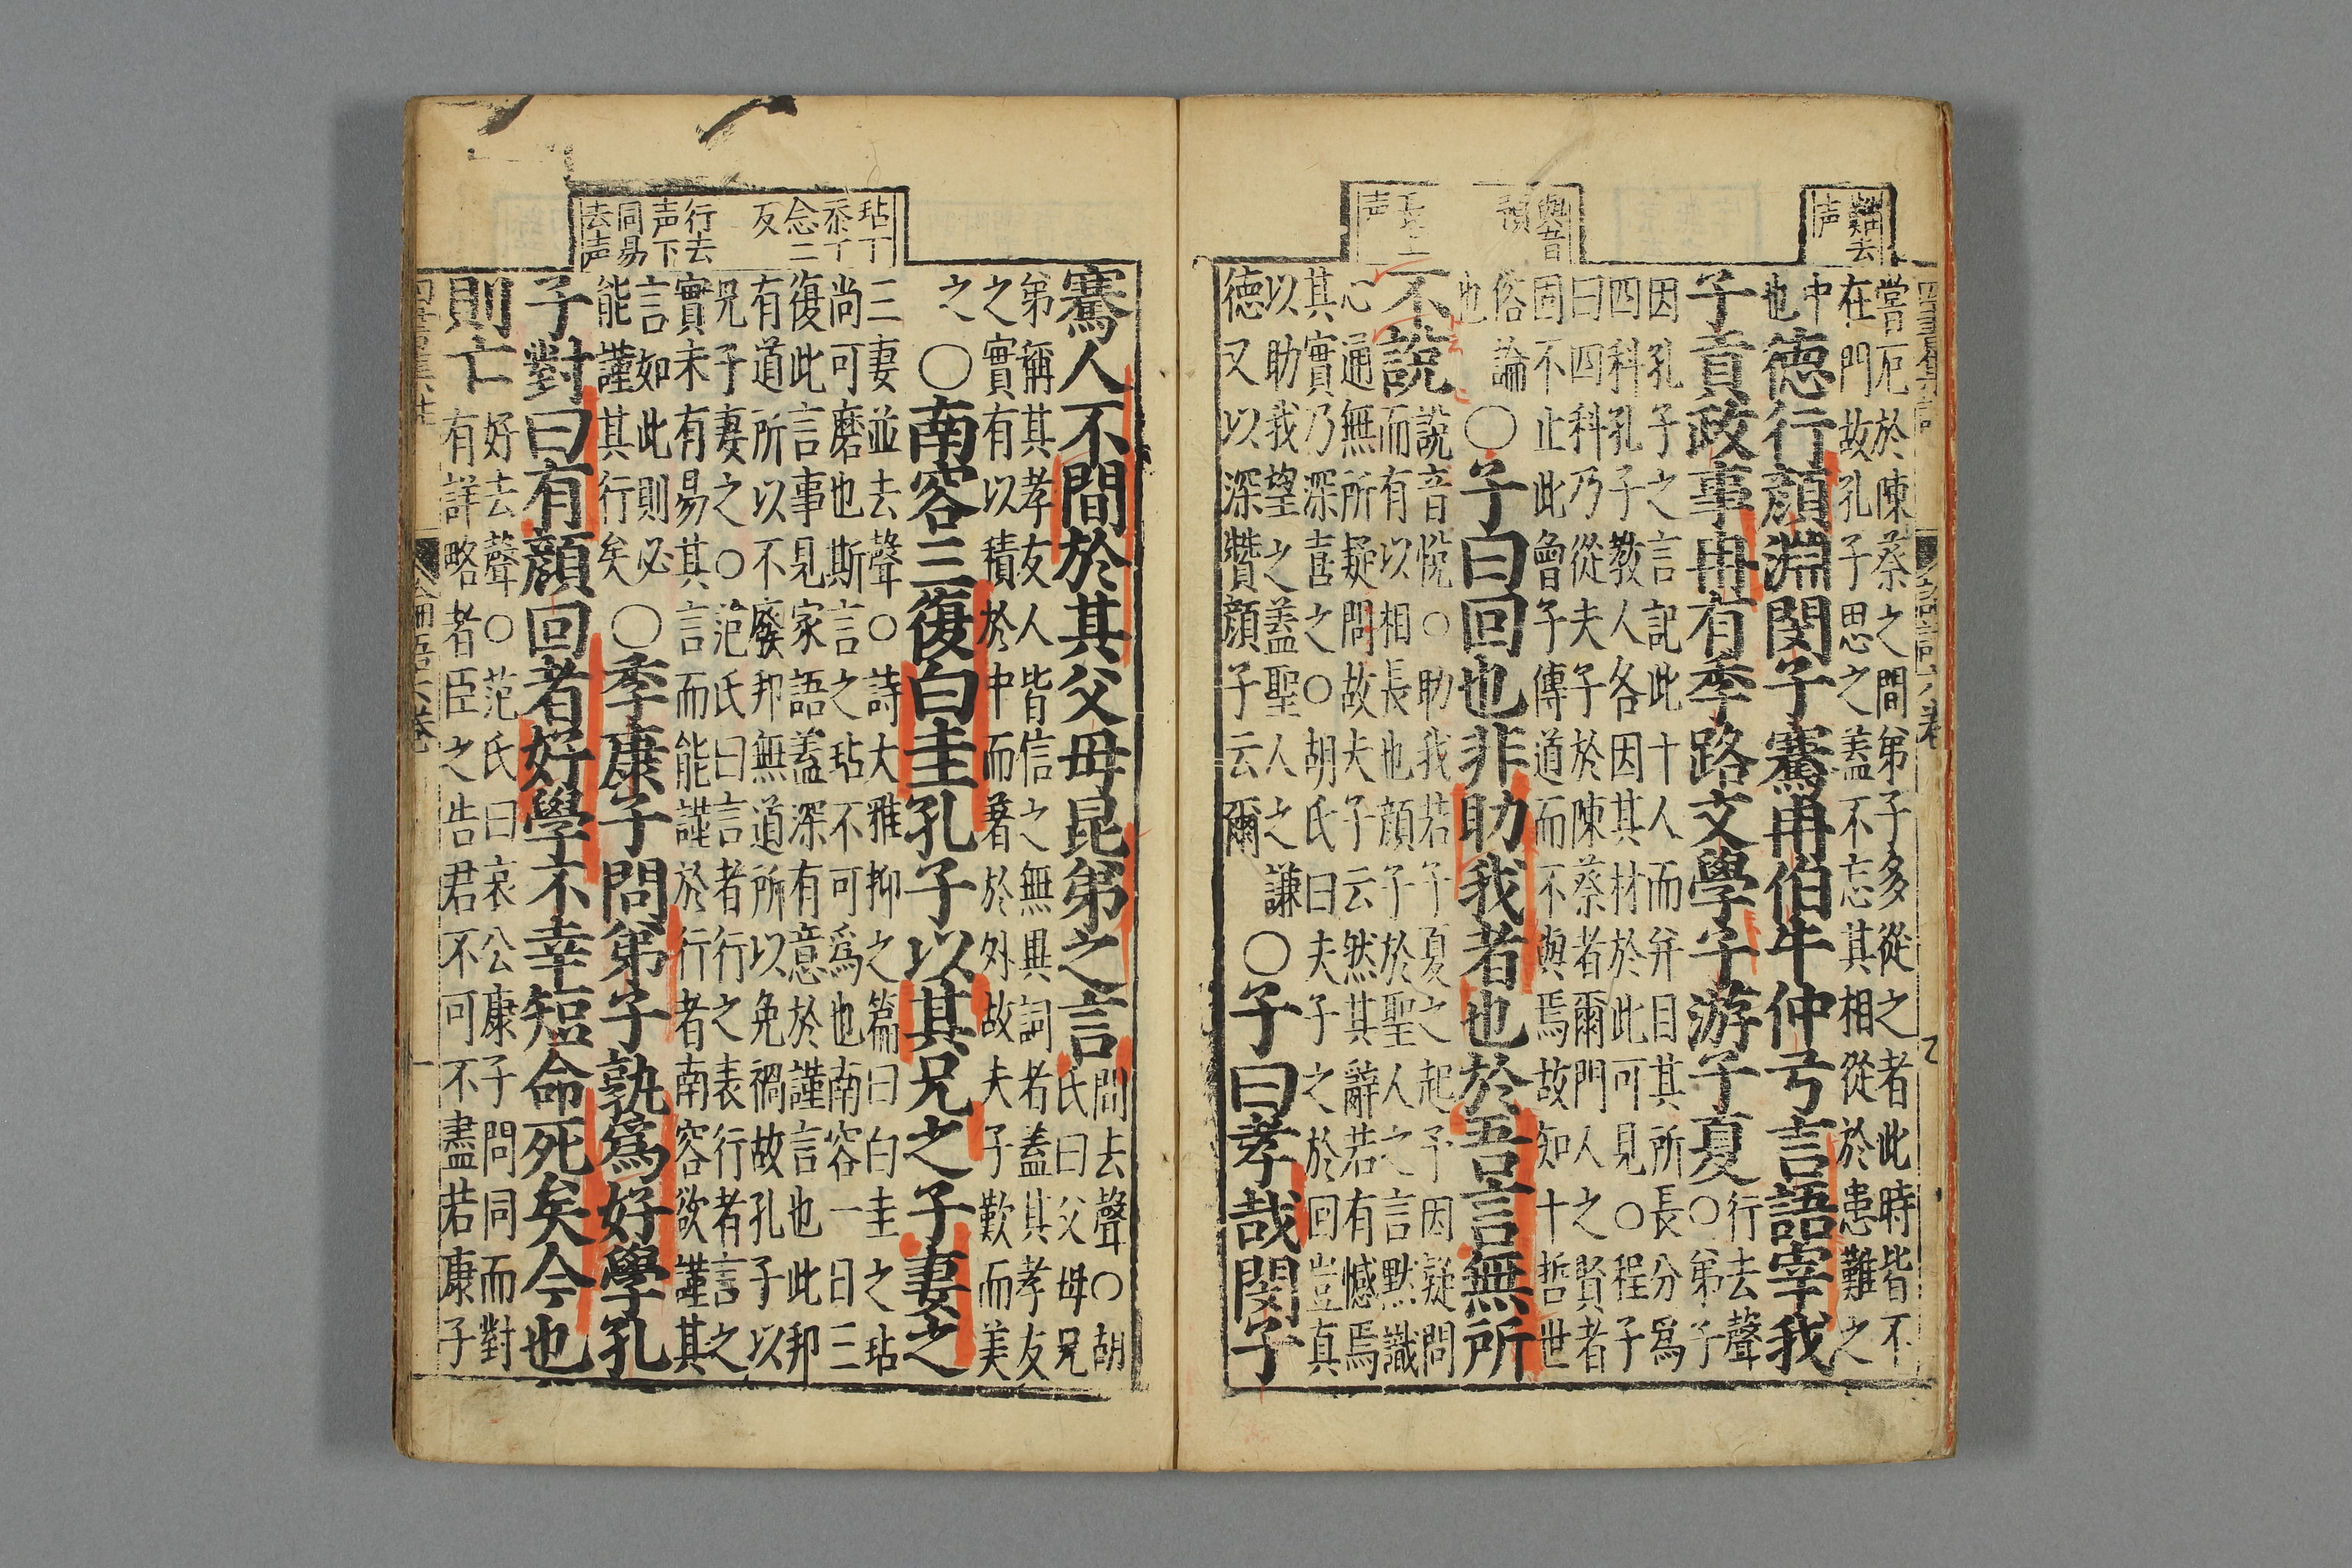 難去
声
嘗厄於陳蔡之間弟子多從之者此時皆不
在門故孔子思之蓋不忘其相從於患難之
中
也
徳行顔淵閔子騫冉伯牛仲弓言語宰我
子貢政事冉有季路文學子游子夏
行去聲
○弟子
因孔子之言記此十人而并目其所長分為
四科孔子教人各因其材於此可見○程子
曰四科乃從夫子於陳蔡者爾門人之賢者
固不止此曾子傳道而不與焉故知十哲世
與音
預
俗論
也
○子曰回也非助我者也於吾言無所
不說
說音悅○助我若子夏之起予因疑問
而有以相長也顔子於聖人之言黙識
長上
声
心通無所疑問故夫子云然其辭若有憾焉
其實乃深喜之○胡氏曰夫子之於回豈真
以助我望之蓋聖人之謙
徳又以深賛顔子云爾
○子曰孝哉閔子
騫人不間於其父毋昆弟之言
間去聲○胡
氏曰父母兄
弟稱其孝友人皆信之無異詞者蓋其孝友
之實有以積於中而著於外故夫子歎而美
之
○南容三復白圭孔子以其兄之子妻之
玷丁
忝丁
念二
反
三妻並去聲○詩大雅抑之篇曰白圭之玷
尚可磨也斯言之玷不可爲也南容一日三
復此言事見家語蓋深有意於謹言也此邦
有道所以不廢邦無道所以免禍故孔子以
兄子妻之○范氏曰言者行之表行者言之
實未有易其言而能謹於行者南容欲謹其
行去
声下
同易
去声
言如此則必
能謹其行矣
○季康子問弟子孰爲好學孔
子對曰有顔回者好學不幸短命死矣今也
則亡
好去聲○范氏曰哀公康子問同而對
有詳略者臣之告君不可不盡若康子